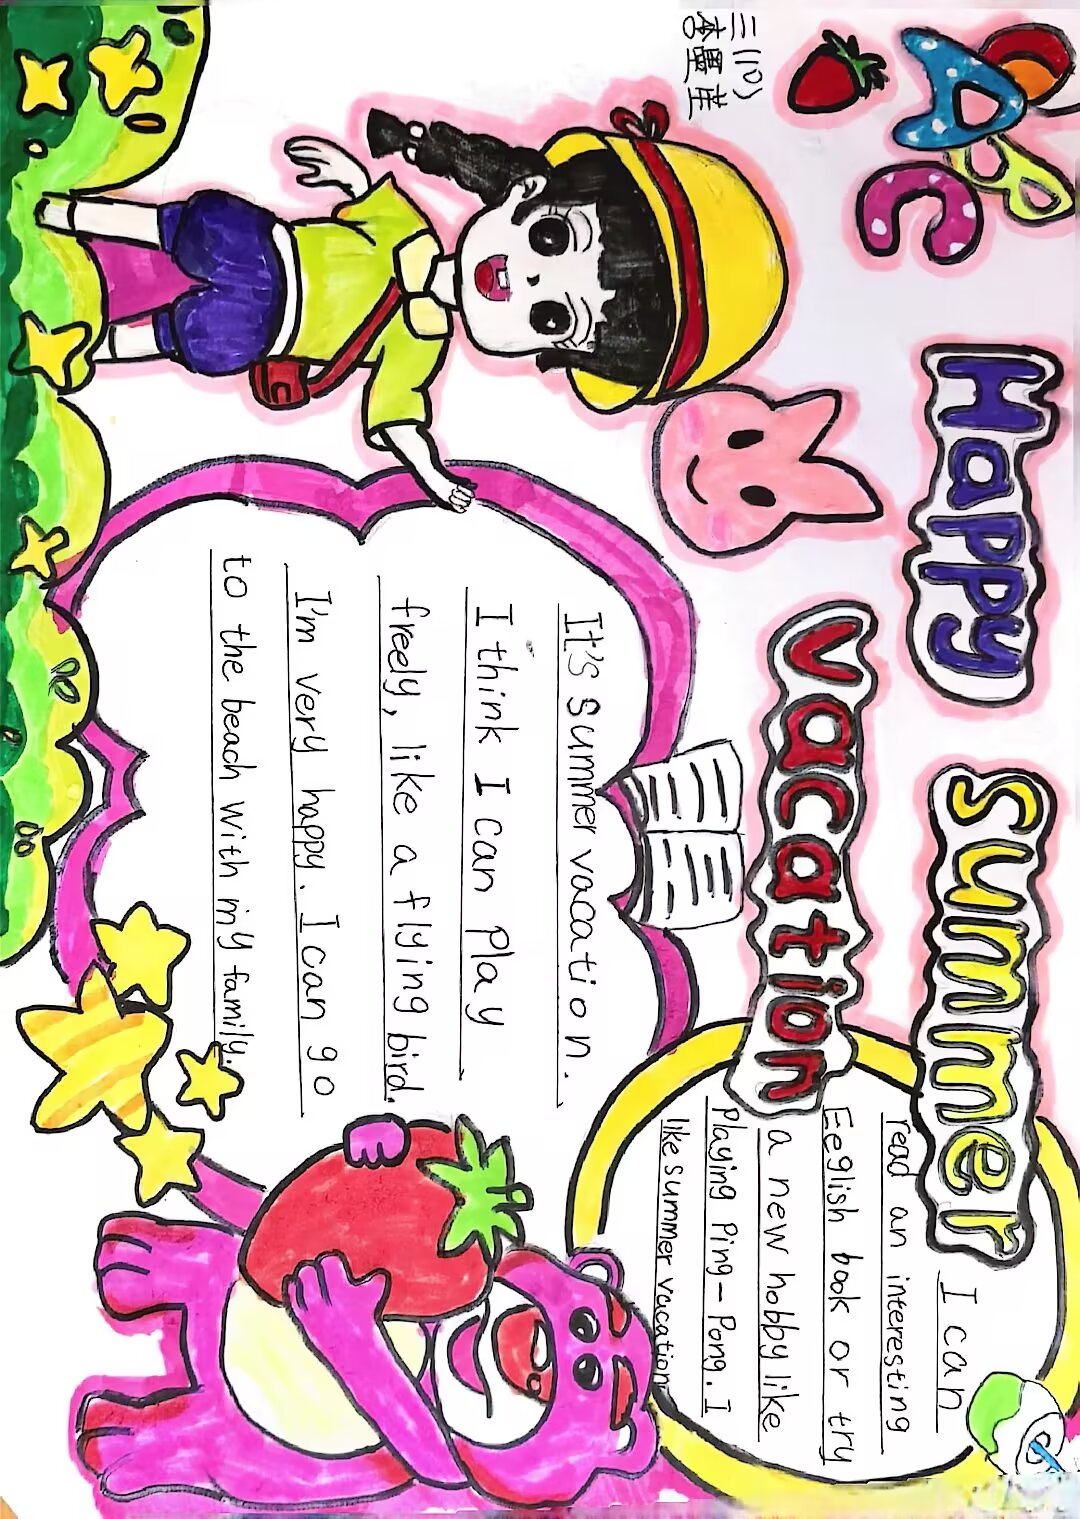 ABC
Happy Summer
Vacation
三(10)
It's summer vacation.
I think I can play
freely, like a flying bird.
I'm very happy. I can go
to the beach with my family.
I can
read an interesting
Eeglish book or try
a new hobby like
Playing Ping-Pong. I
like summer vacation